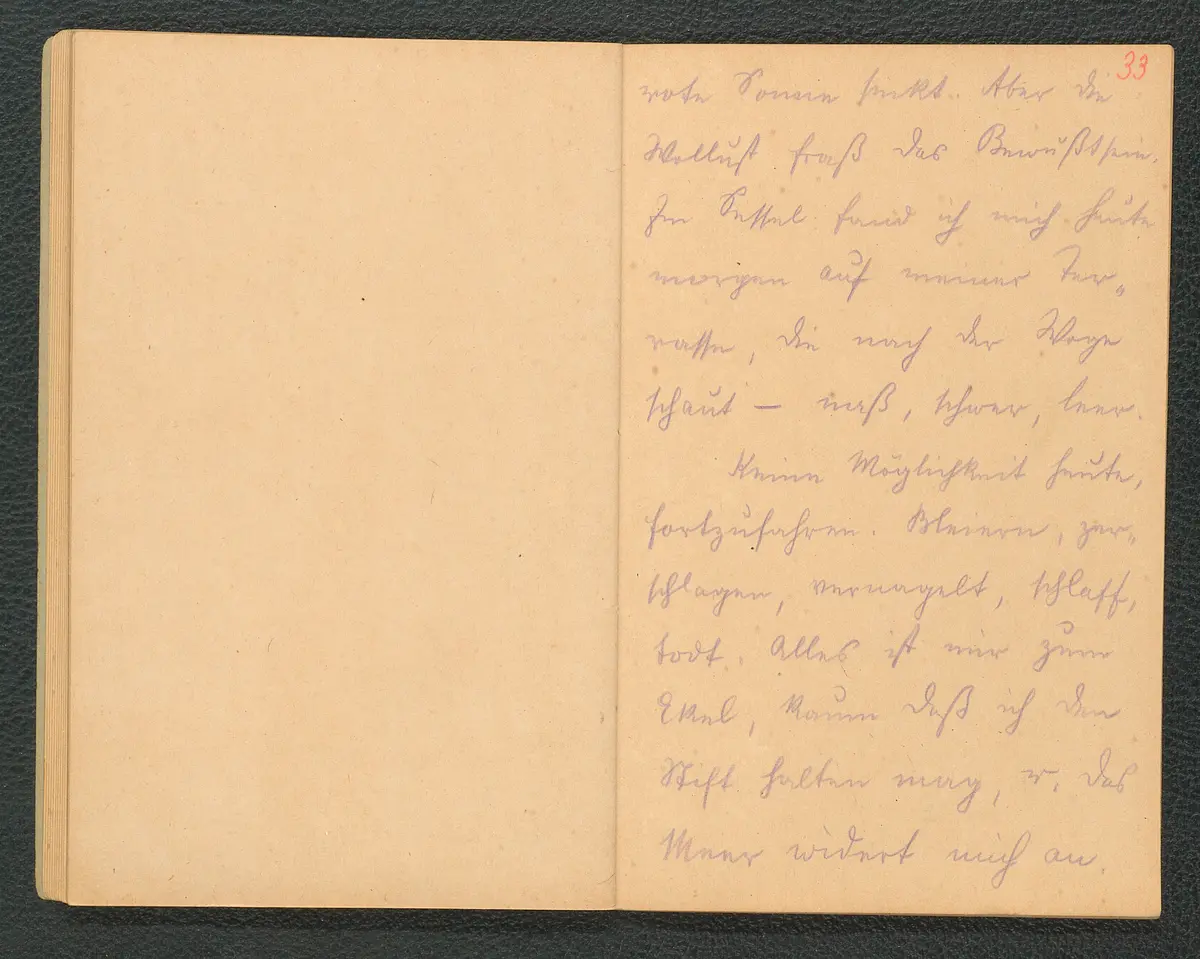 33
rote Sonne sinkt. Aber die
Wollust fraß das Bewußtsein.
Im Sessel fand ich mich heute
morgen auf meiner Ter-
rasse, die nach der Woge
schaut — naß, schwer, leer.
Keine Möglichkeit heute,
fortzufahren. Bleiern, zer-
schlagen, vernagelt, schlaff,
todt. Alles ist mir zum
Ekel, kaum daß ich den
Stift halten mag, u. das
Meer widert mich an.